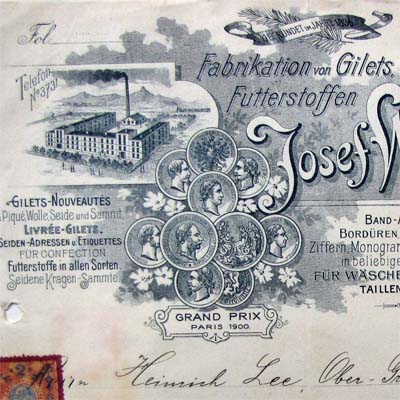 Fol.
GEGRÜNDET IM JAHRE
Telefon
No 3731.
Fabrikation von Gilets,
Futterstoffen
Josef W
GILETS-NOUVEAUTÉS
in Piqué, Wolle, Seide und Sammt.
LIVRÉE-GILETS.
SEIDEN-ADRESSEN u ETIQUETTES
FÜR CONFECTION.
Futterstoffe in allen Sorten.
Seidene Kragen-Sammte.
BAND-
BORDÜREN,
Ziffern, Monogram
in beliebige
FÜR WÄSCHE
TAILLEN
GRAND PRIX
PARIS 1900.
Heinrich Lee, Ober-